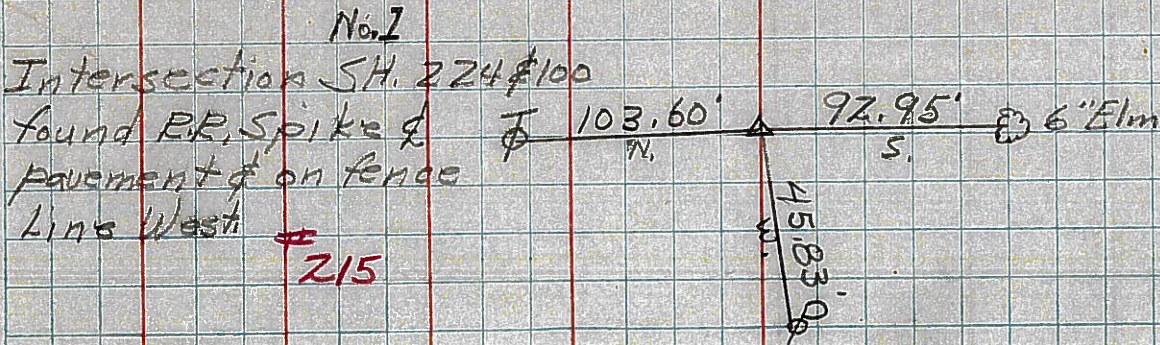 No. I
Intersection SH. 224 & 100
found R.R. Spike &
pavement & on fence
Line West.
215
103.60'
N.
92.95'
S.
6" Elm
45.83'
W.